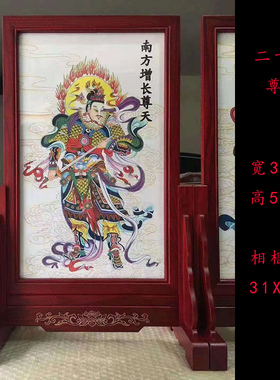 南方增长尊天
二十
尊
宽3
高5
相框
31X